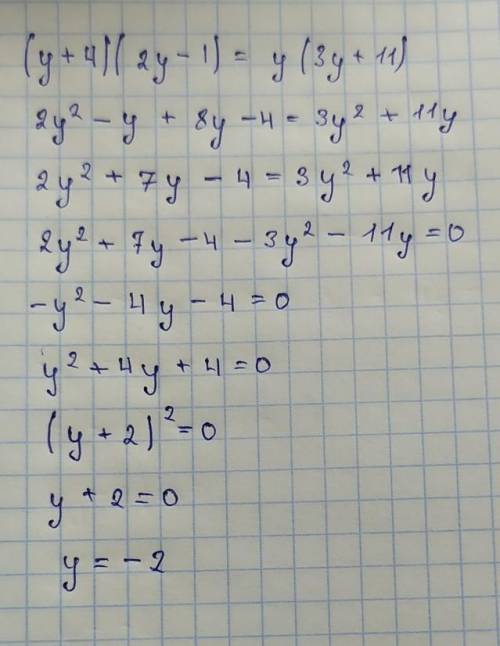 (y+4)(2y-1) = y(3y+11)
2y² - y + 8y - 4 = 3y² + 11y
2y² + 7y - 4 = 3y² + 11y
2y² + 7y - 4 - 3y² - 11y = 0
-y² - 4y - 4 = 0
y² + 4y + 4 = 0
(y + 2)² = 0
y + 2 = 0
y = -2